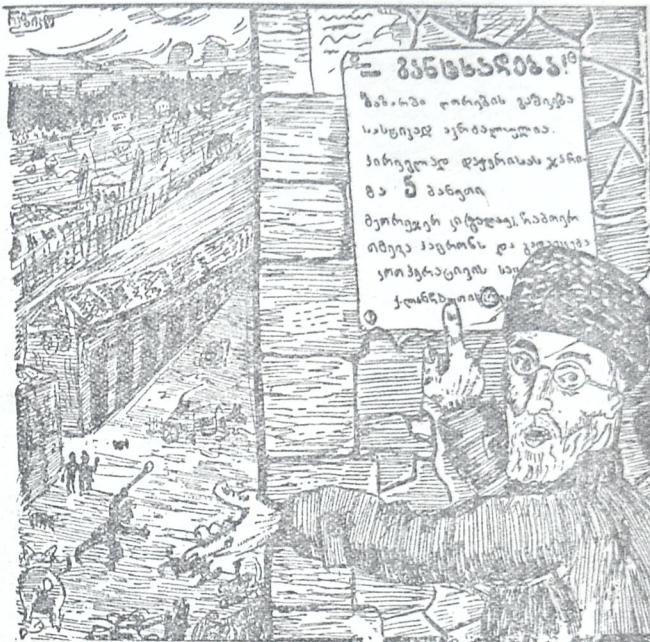 განცხადება!
ბაზარში ღორების გაშვება
სასტიკად აკრძალულია.
პირველად დაჭერისას ჯარი-
მა 5 მანეთი
მეორეჯერ კი ჩამოერ
თმევა პატრონს და გადაეცემა
კოოპერატივის